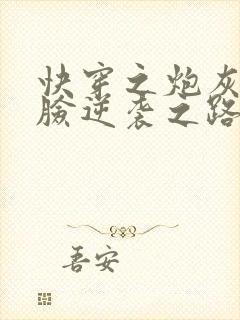 快穿之炮灰
脸逆袭之路
吾安